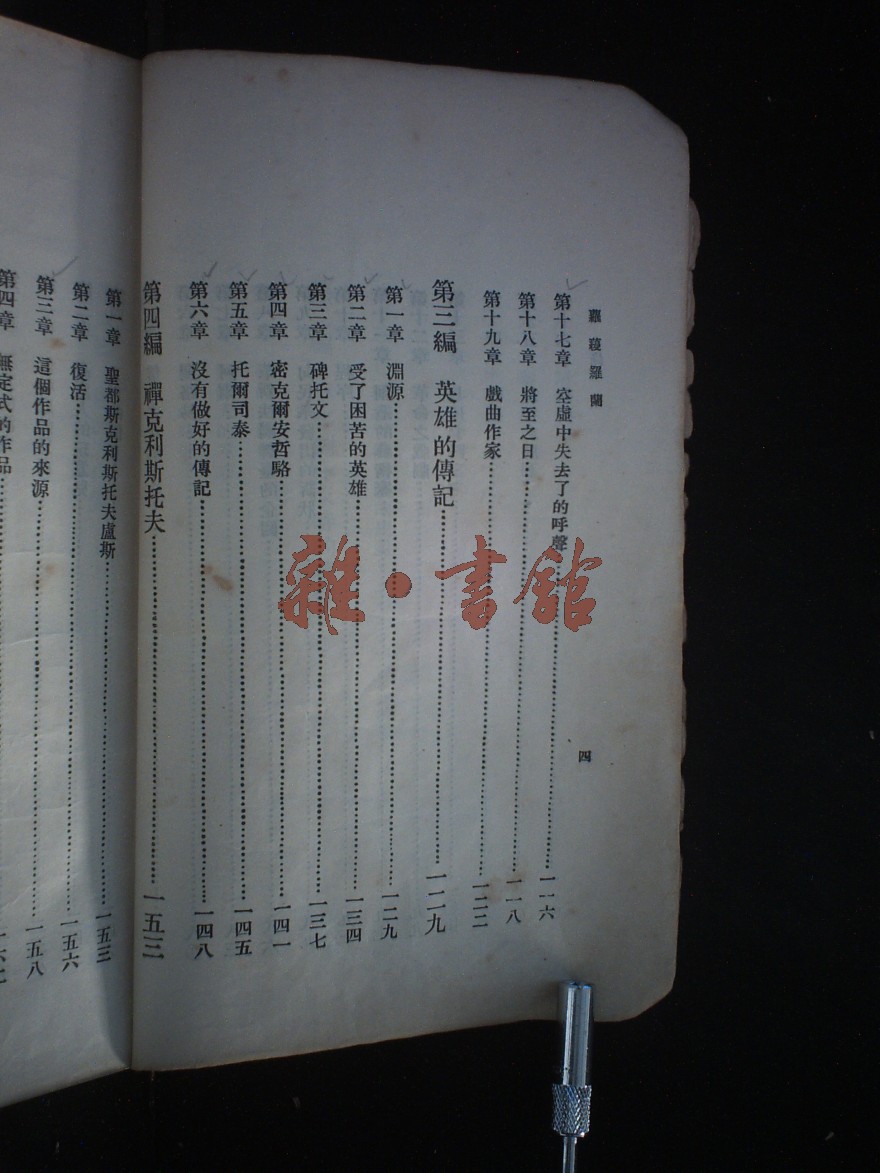 羅蘭
第十七章 空虛中失去了的呼聲……一一六
第十八章 將至之日……一一八
第十九章 戲曲作家……一二二
第三編 英雄的傳記……一二九
第一章 淵源……一二九
第二章 受了困苦的英雄……一三四
第三章 碑托文……一三七
第四章 密克爾安哲駱……一四一
第五章 托爾司泰……一四五
第六章 沒有做好的傳記……一四八
第四編 禪克利斯托夫……一五三
第一章 聖都斯克利斯托夫盧斯……一五三
第二章 復活……一五六
第三章 這個作品的來源……一五八
第四章 無定式的作品
四
雜·書館